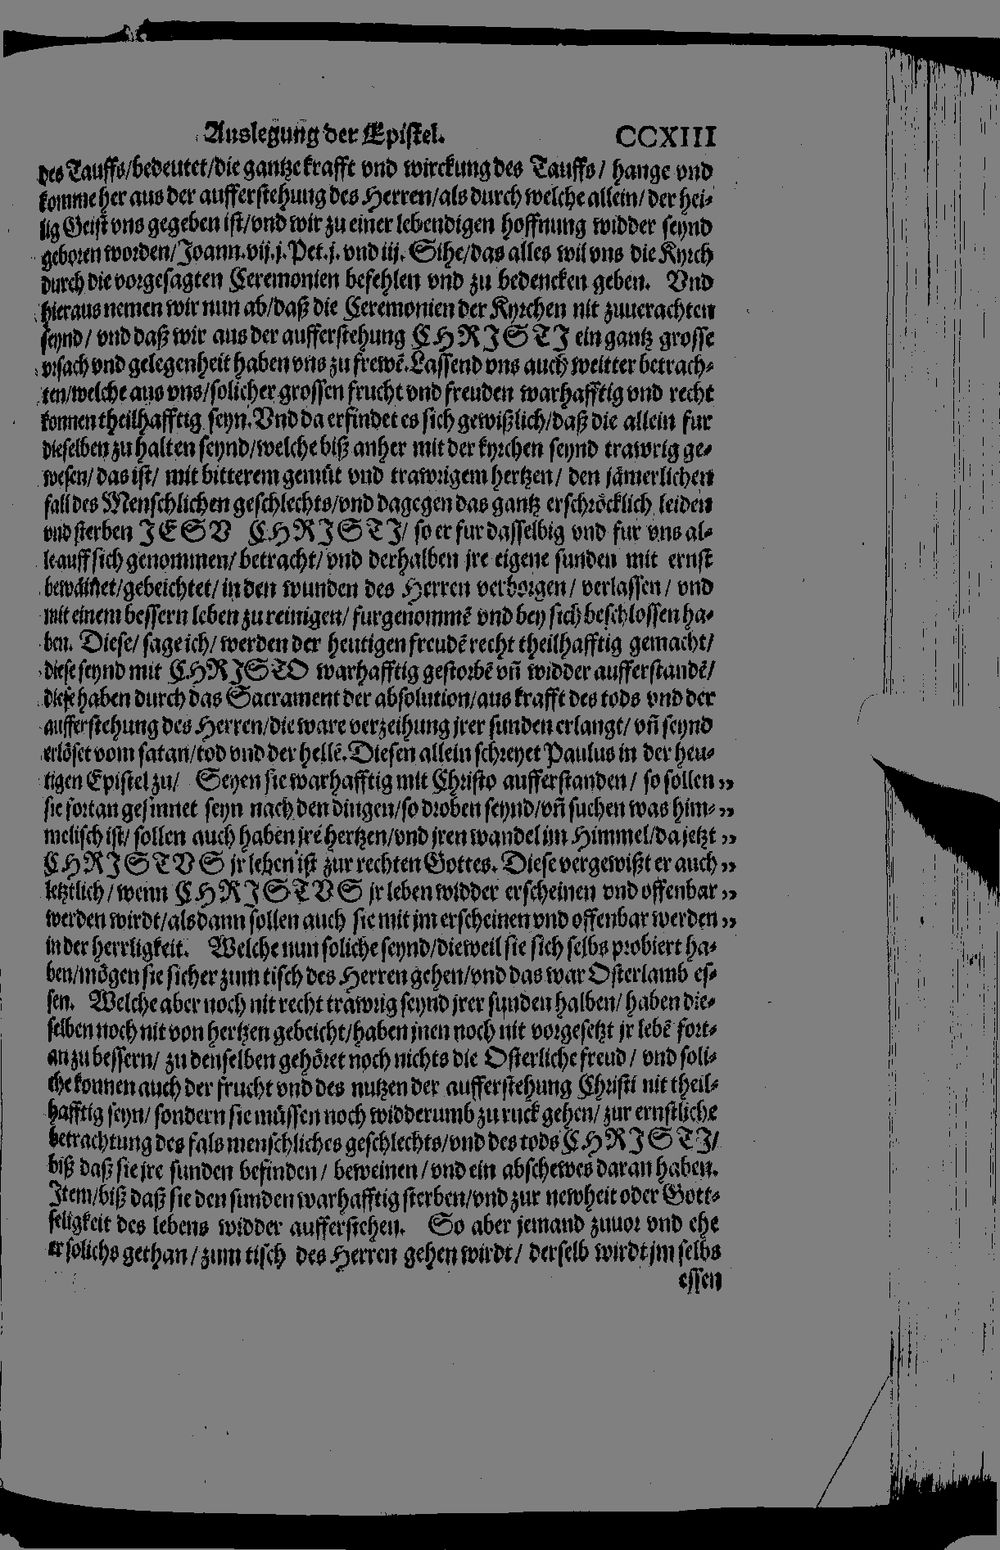 Auslegung der Epistel. CCXIII
des Tauffs/bedeutet/die gantze krafft vnd wirckung des Tauffs/ hange vnd
komme her aus der aufferstehung des Herren/als durch welche allein/der hei-
lig Geist vns gegeben ist/vnd wir zu einer lebendigen hoffnung widder seynd
geboren worden/Joann.vij.j.Pet.j. vnd iij. Sihe/das alles wil vns die Kyrch
durch die vorgesagten Ceremonien befehlen vnd zu bedencken geben. Vnd
hieraus nemen wir nun ab/daß die Ceremonien der Kyrchen nit zuuerachten
seynd/ vnd daß wir aus der aufferstehung CHRISTI ein gantz grosse
vrsach vnd gelegenheit haben vns zu frewē. Lassend vns auch weitter betrach-
ten/welche aus vns/solicher grossen frucht vnd freuden warhafftig vnd recht
konnen theilhafftig seyn. Vnd da erfindet es sich gewißlich/daß die allein fur
dieselben zu halten seynd/welche biß anher mit der kyrchen seynd trawrig ge-
wesen/das ist/ mit bitterem gemüt vnd trawrigem hertzen/ den jämerlichen
fall des Menschlichen geschlechts/vnd dagegen das gantz erschröcklich leiden
vnd sterben JESV CHRISTI/ so er fur dasselbig vnd fur vns al-
le auff sich genommen/ betracht/ vnd derhalben jre eigene sunden mit ernst
beweinet/gebeichtet/in den wunden des Herren verborgen/ verlassen/ vnd
mit einem bessern leben zu reinigen/ furgenommē vnd bey sich beschlossen ha-
ben. Diese/ sage ich/ werden der heutigen freudē recht theilhafftig gemacht/
diese seynd mit CHRISTO warhafftig gestorbē vñ widder aufferstandē/
diese haben durch das Sacrament der absolution/aus krafft des tods vnd der
aufferstehung des Herren/die ware verzeihung jrer sunden erlangt/ vñ seynd
erlöset vom satan/tod vnd der hellē. Diesen allein schreyet Paulus in der heu-
tigen Epistel zu/ Seyen sie warhafftig mit Christo aufferstanden/ so sollen „
sie fortan gesinnet seyn nach den dingen/so droben seynd/vñ suchen was him- „
melisch ist/ sollen auch haben jrē hertzen/vnd jren wandel im Himmel/da jetzt „
CHRISTVS jr leben ist zur rechten Gottes. Diese vergewißt er auch „
letztlich/ wenn CHRISTVS jr leben widder erscheinen vnd offenbar „
werden wirdt/alsdann sollen auch sie mit jm erscheinen vnd offenbar werden „
in der herrligkeit. Welche nun soliche seynd/dieweil sie sich selbs probiert ha-
ben/mögen sie sicher zum tisch des Herren gehen/vnd das war Osterlamb es-
sen. Welche aber noch nit recht trawrig seynd jrer sunden halben/ haben die-
selben noch nit von hertzen gebeicht/haben jnen noch nit vorgesetzt jr lebē fort-
an zu bessern/ zu denselben gehöret noch nichts die Osterliche freud/ vnd soli-
che konnen auch der frucht vnd des nutzen der aufferstehung Christi nit theil-
hafftig seyn/ sondern sie müssen noch widderumb zu ruck gehen/ zur ernstliche
betrachtung des fals menschliches geschlechts/vnd des tods CHRISTI/
biß daß sie jre sunden befinden/ beweinen/ vnd ein abschewes daran haben.
Item/biß daß sie den sunden warhafftig sterben/vnd zur newheit oder Gott-
seligkeit des lebens widder aufferstehen. So aber jemand zuuor vnd ehe
er solichs gethan/ zum tisch des Herren gehen wirdt/ derselb wirdt jm selbs
essen